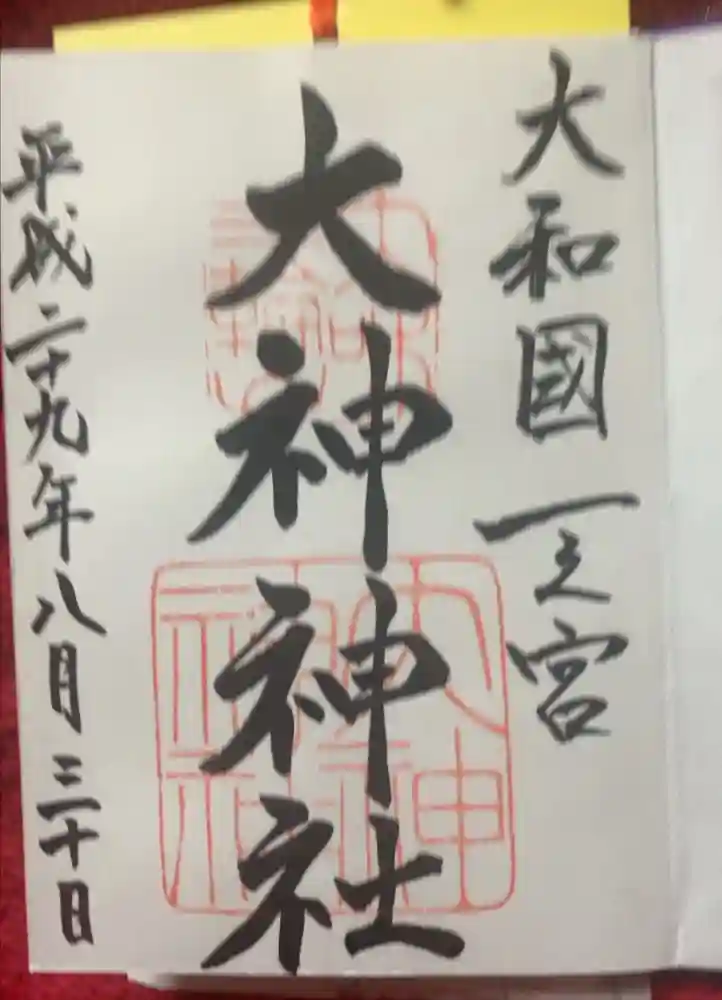 大和國一之宮
大神神社
平成二十九年八月三十日
大神神社